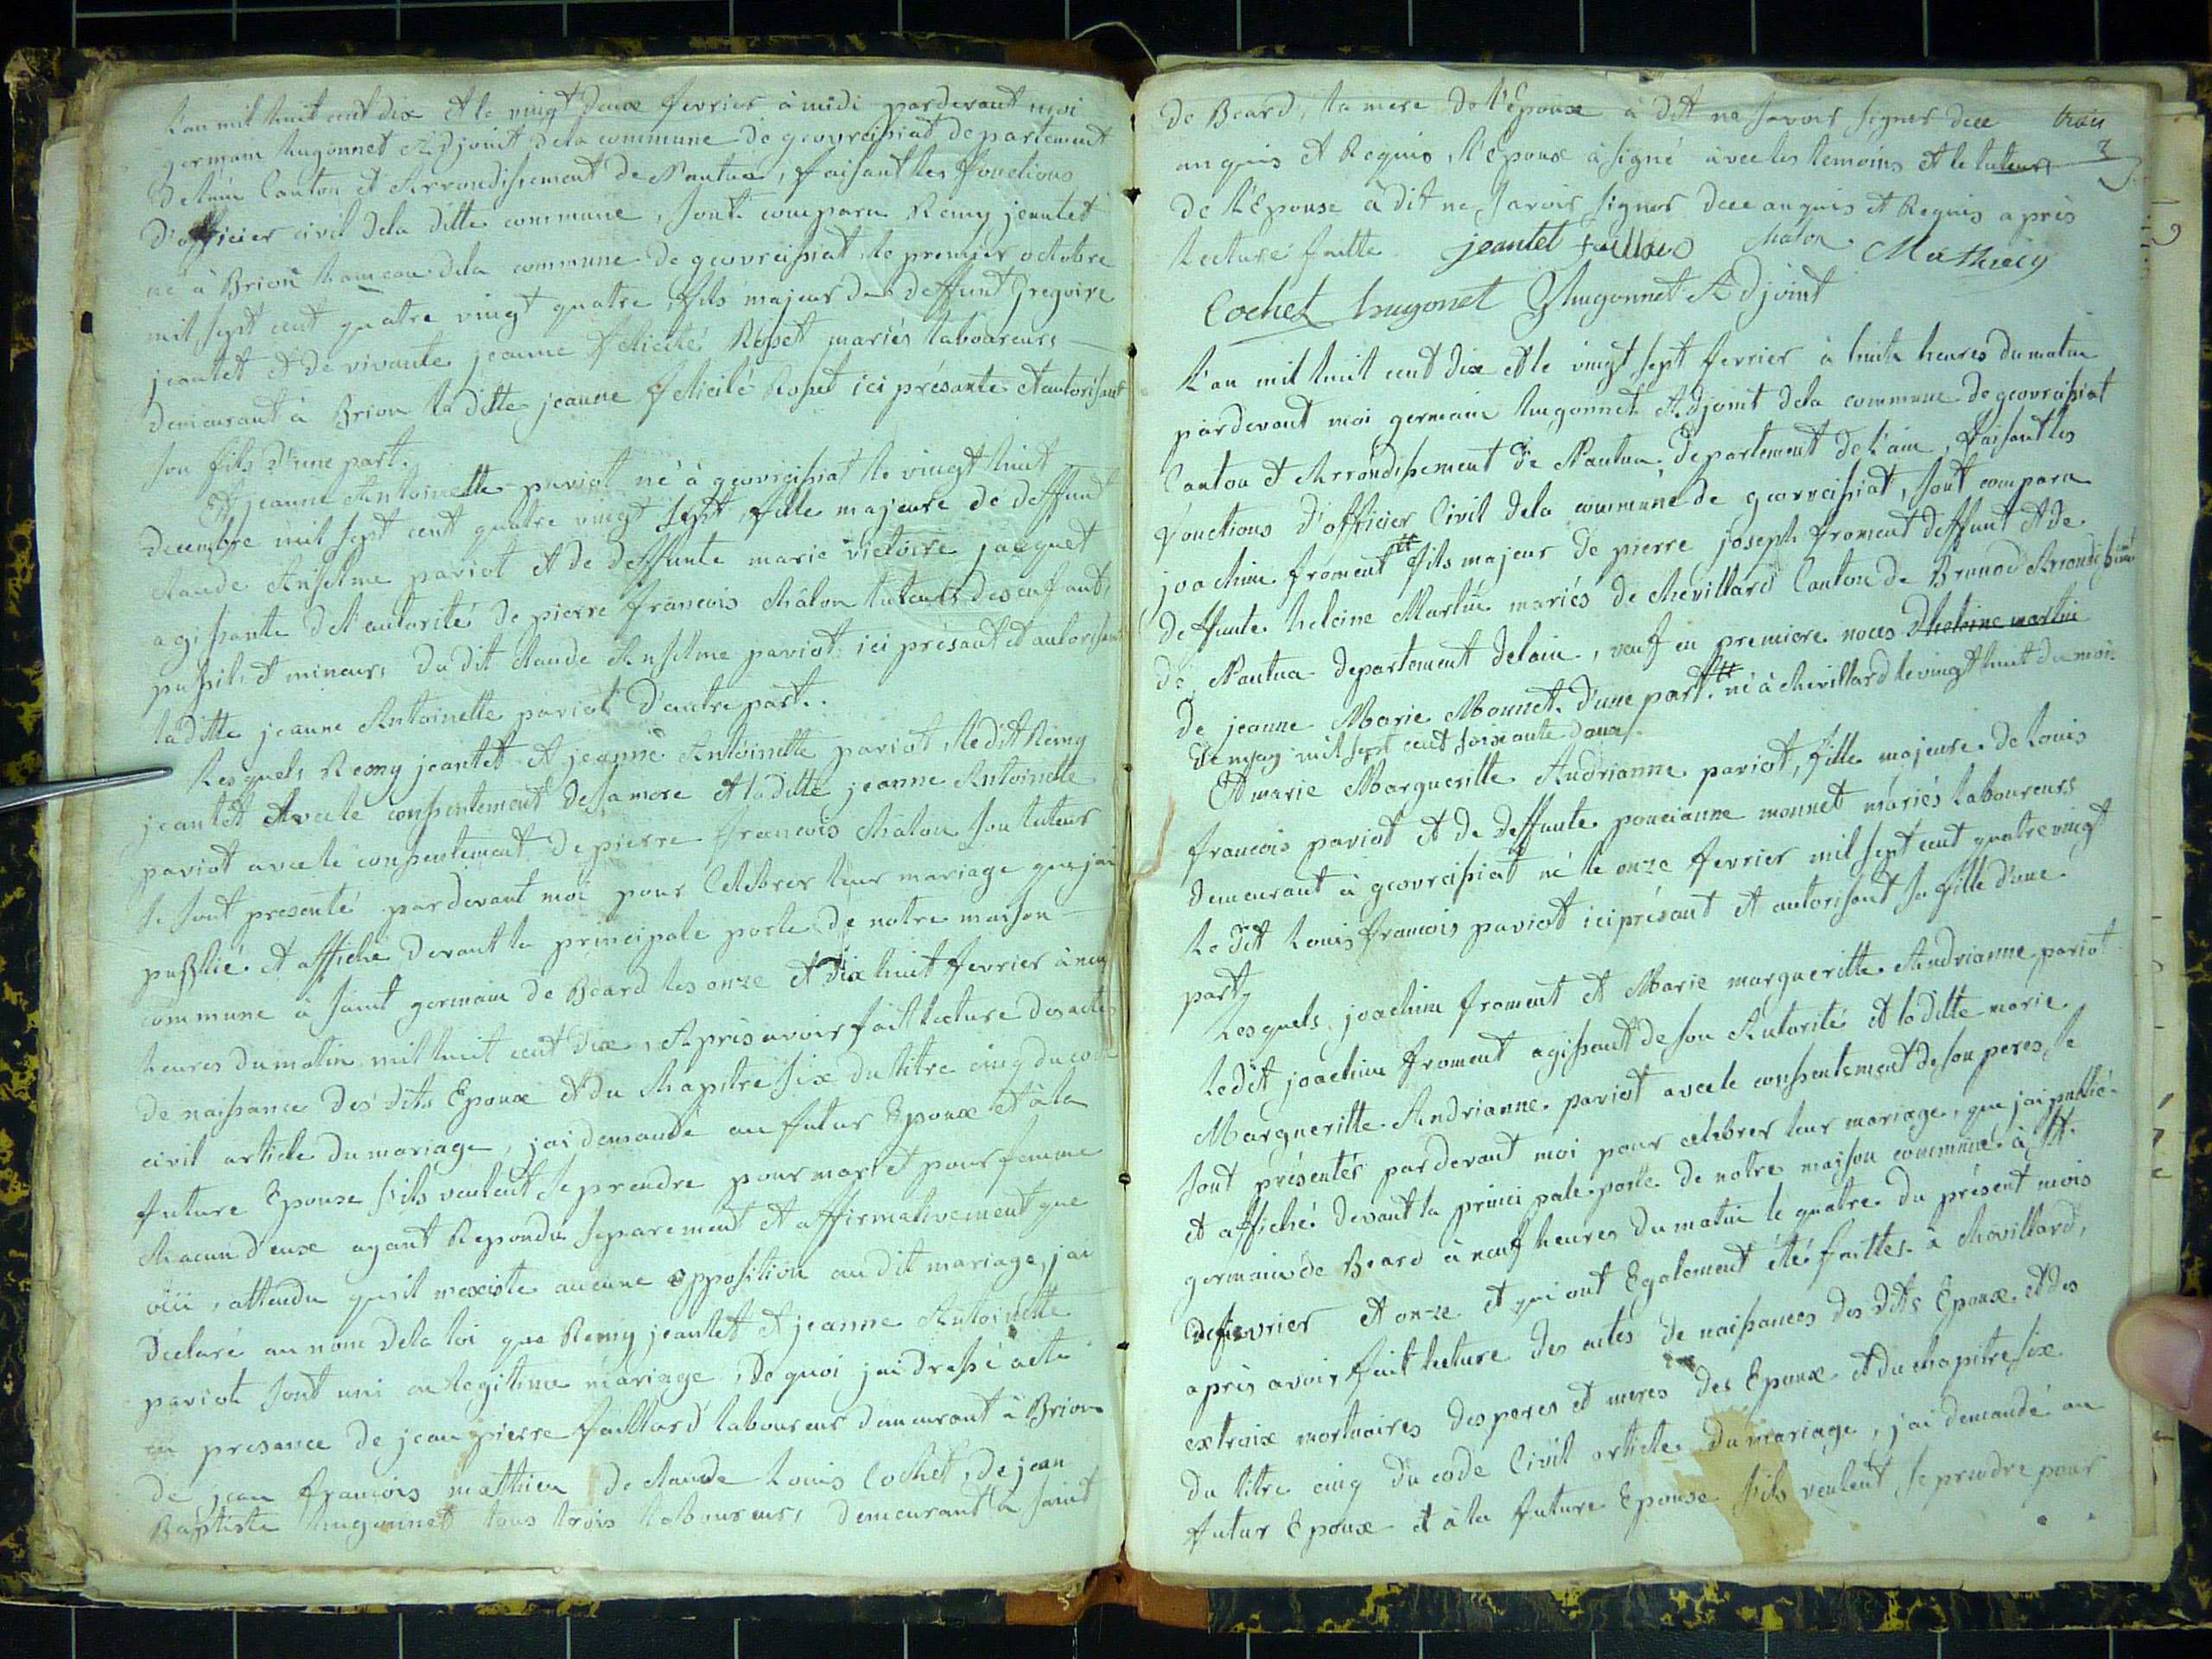 L'an mil huit cent dix et le vingt deux fevrier à midi pardevant moi
germain hugonnet Adjoint dela commune de geovreissiat departement
Delain Canton et Arrondissement de Nantua, faisant les fonctions
D'officier civil dela ditte commune, sont comparu Remy jeantet
né à Brion hameau dela commune de geovreissiat le premier octobre
mil sept cent quatre vingt quatre, fils majeur de deffunt gregoire
jeantet et de vivante jeanne felicité Rosset mariés laboureurs
demeurant à Brion la ditte jeanne felicité Rosset ici présante et autorisant
son fils d'une part.
Et jeanne Antoinette pariot né à geovreissiat le vingt huit
decembre mil sept cent quatre vingt sept, fille majeure de deffunt
claude Anselme pariot et de deffunte marie victoire jacquet
agissante de l'autorité de pierre françois chalon tuteur des enfants
pupils et mineurs du dit claude Anselme pariot ici présant et autorisant
laditte jeanne Antoinette pariot d'autre part.
Lesquels Remy jeantet et jeanne Antoinette pariot, ledit Remy
jeantet Avec le consentement de sa mere et laditte jeanne Antoinette
pariot avec le consentement de pierre françois chalon son tuteur
se sont presenté pardevant moi pour celebrer leur mariage que jai
publié et affiché devant la principale porte de notre maison
commune à saint germain de Béard les onze et dix huit fevrier à neuf
heures du matin mil huit cent dix, Après avoir fait lecture des actes
de naissance des dits Epoux et du chapitre six du titre cinq du code
civil article du mariage, jai demandé au futur Epoux et à la
future Epouse s'ils veulent se prendre pour mari et pour femme
chacun d'eux ayant Repondu separement et affirmativement que
oüi, attendu qu'il n'existe aucune opposition au dit mariage, jai
declaré au nom dela loi que Remy jeantet et jeanne Antoinette
pariot sont uni en legitime mariage, de quoi jai dressé acte
en presance de jean pierre faillard laboureur demeurant à Brion
de jean françois mathieu de claude Louis Cochet, de jean
Baptiste hugonnet tous trois laboureurs demeurant à saint
trois
3
de Beard, la mere de l'Epoux à dit ne savoir signer dece
enquis et Requis, l'epoux à signé avec les temoins et le tuteur
de l'Epouse à dit ne savoir signer dece enquis et Requis après
lecture faitte. jeantet faillard chalon Mathieu
Cochet hugonet Ghugonnet Adjoint
L'an mil huit cent dix et le vingt sept fevrier à huit heures du matin
pardevant moi germain hugonnet Adjoint dela commune de geovreissiat
Canton et Arrondissement de Nantua, Departement de l'ain, faisant les
fonctions d'officier Civil dela commune de geovreissiat, sont comparu
joachim froment fils majeur de pierre joseph froment deffunt et de
deffunte heleine Martin mariés de chevillard Canton de Brenod Arrondissement
de Nantua departement delain, veuf en premiere noces Dheleine martin
de jeanne Marie Monnet. d'une part. né à chevillard le vingt huit du mois
de may mil sept cent soixante douze.
Et marie Margueritte Andrianne pariot, fille majeure de Louis
françois pariot et de deffunte poncianne monnet mariés laboureurs
demeurant à geovreissiat né le onze fevrier mil sept cent quatre vingt
Le dit Louis françois pariot ici présant et autorisant sa fille d'une
part.
Lesquels joachim froment et Marie margueritte Andrianne pariot
ledit joachim froment agissant de son Autorité et laditte marie
Margueritte Andrianne pariot avec le consentement de son peres, se
sont présentés pardevant moi pour celebrer leur mariage, que jai publié
et affiché devant la principale porte de notre maison commune à St
germain de Beard à neuf heures du matin le quatre du présent mois
de fevrier et onze et qui ont Egalement été faittes à chevillard,
après avoir fait lecture des actes de naissances des dits Epoux et des
extraix mortuaires des peres et meres des Epoux et du chapitre six
du titre cinq du code Civil article du mariage, jai demandé au
futur Epoux et à la future Epouse s'ils veulent se prendre pour